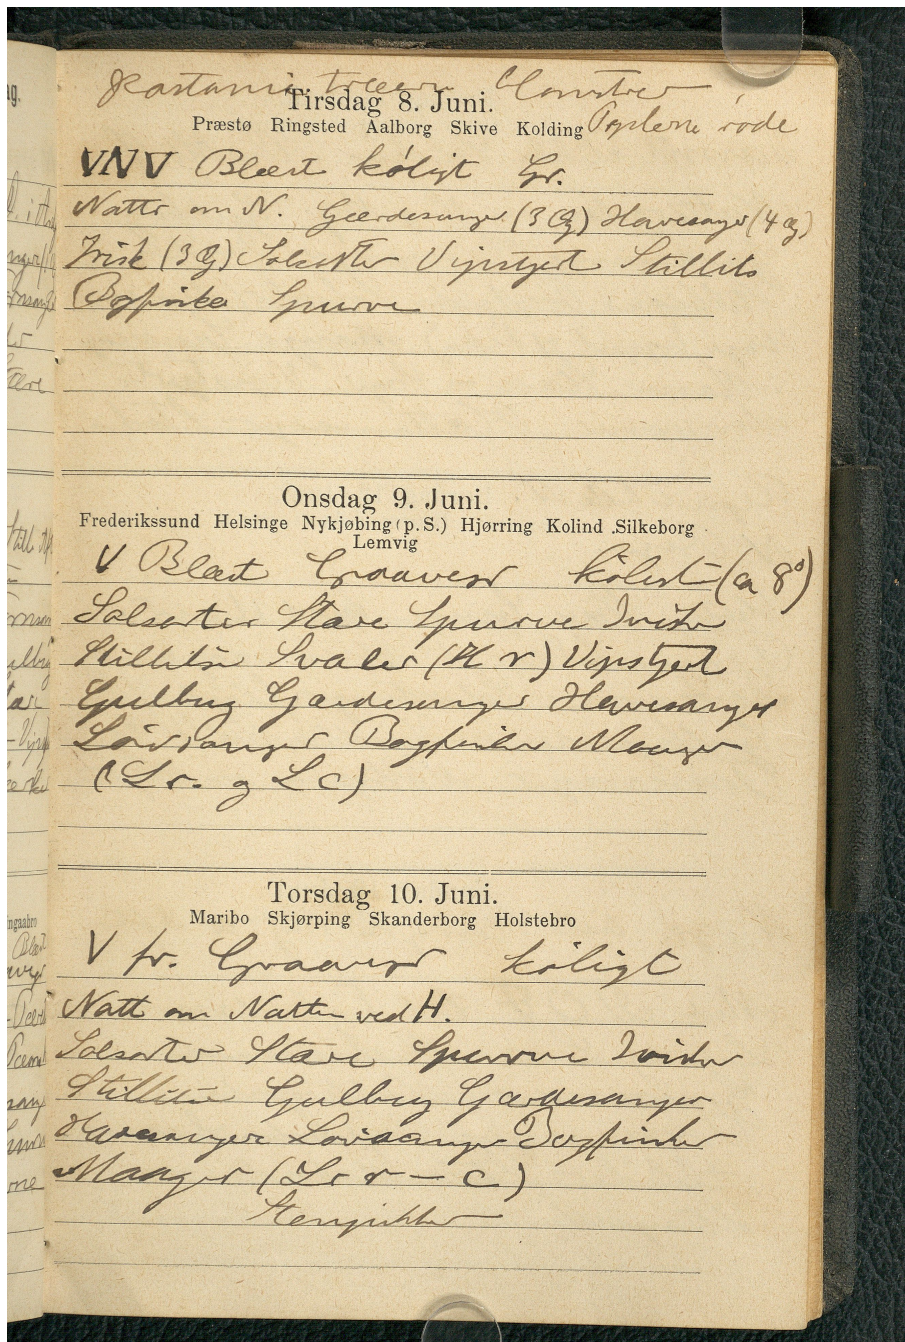 Kastanietræerne blomstrer
Tirsdag 8. Juni.
Præstø Ringsted Aalborg Skive Kolding Poplerne røde
VNV Blæst køligt Gr.
Natte om N. Gærdesanger (3 Æg) Havesanger (4 Æg)
Irisk (3 Æg) Solsorter Vipstjert Stillits
Bogfinke Spurve
Onsdag 9. Juni.
Frederikssund Helsinge Nykjøbing (p. S.) Hjørring Kolind Silkeborg
Lemvig
V Blæst Graavejr køligt (ca 8°)
Solsorter Stære Spurve Iriske
Stillitse Svaler (H r) Vipstjert
Gulbug Gærdesanger Havesanger
Løvsanger Bogfinke Maager
(L r. og L c)
Torsdag 10. Juni.
Maribo Skjørping Skanderborg Holstebro
V fr. Graavejr køligt
Natt om Natten ved H.
Solsorter Stære Spurve Iriske
Stillitse Gulbug Gærdesanger
Havesanger Løvsanger Bogfinke
Maager (L r – c)
Stenpikker